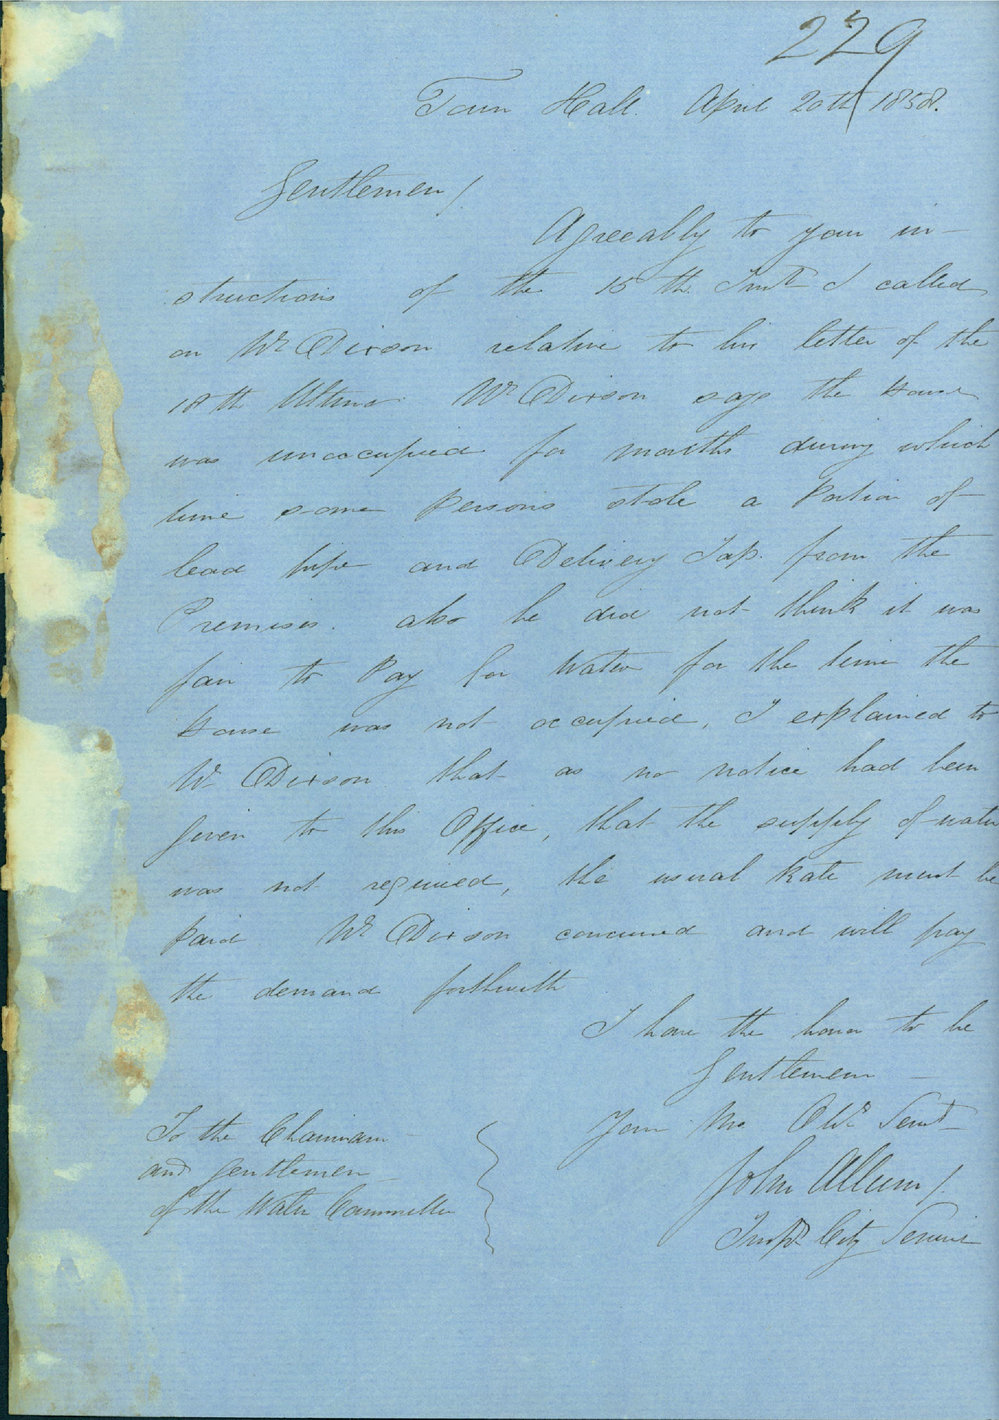 229
Town Hall. April 20th 1858.
Gentlemen/
Agreeably to your in-
structions of the 15th Inst I called
on Mr Dixson relative to his letter of the
18th Ultimo. Mr Dixson says the House
was unoccupied for months during which
time some Persons stole a Portion of
lead pipe and Delivery Tap. from the
Premises. also he did not think it was
fair to Pay for Water for the time the
House was not occupied, I explained to
Mr Dixson that as no notice had been
given to this Office, that the supply of water
was not required, the usual Rate must be
Paid Mr Dixson concurred and will pay
the demand forthwith
I have the honor to be
Gentlemen
Your Mo Obt Servt
John Allum/
Inspr City Service
To the Chairman
and Gentlemen
of the Water Committee